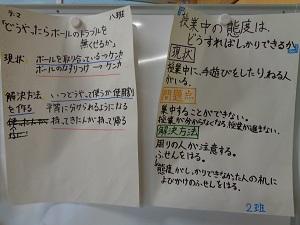 5.2 八班
「どうやったらボールのトラブルを
無くせるか。
現状 ボールを取り合っている→ケンカ
ボールのなすりつけ→ケンカ
解決方法 いつどうやって使うか使用割
を作る 平等に分けられるようになる
持ってきた人が持って帰る
授業中の態度は、
どうすればしっかりできるか
現状
授業中に、手遊びをしたりねる人
がいる。
問題点
集中することができない。
授業が分からなくなる、授業が進まない。
解決方法
周りの人が注意する。
ふせんをはる。
態度がしっかりできなかった人の机に
よびかけのふせんをはる。
2班